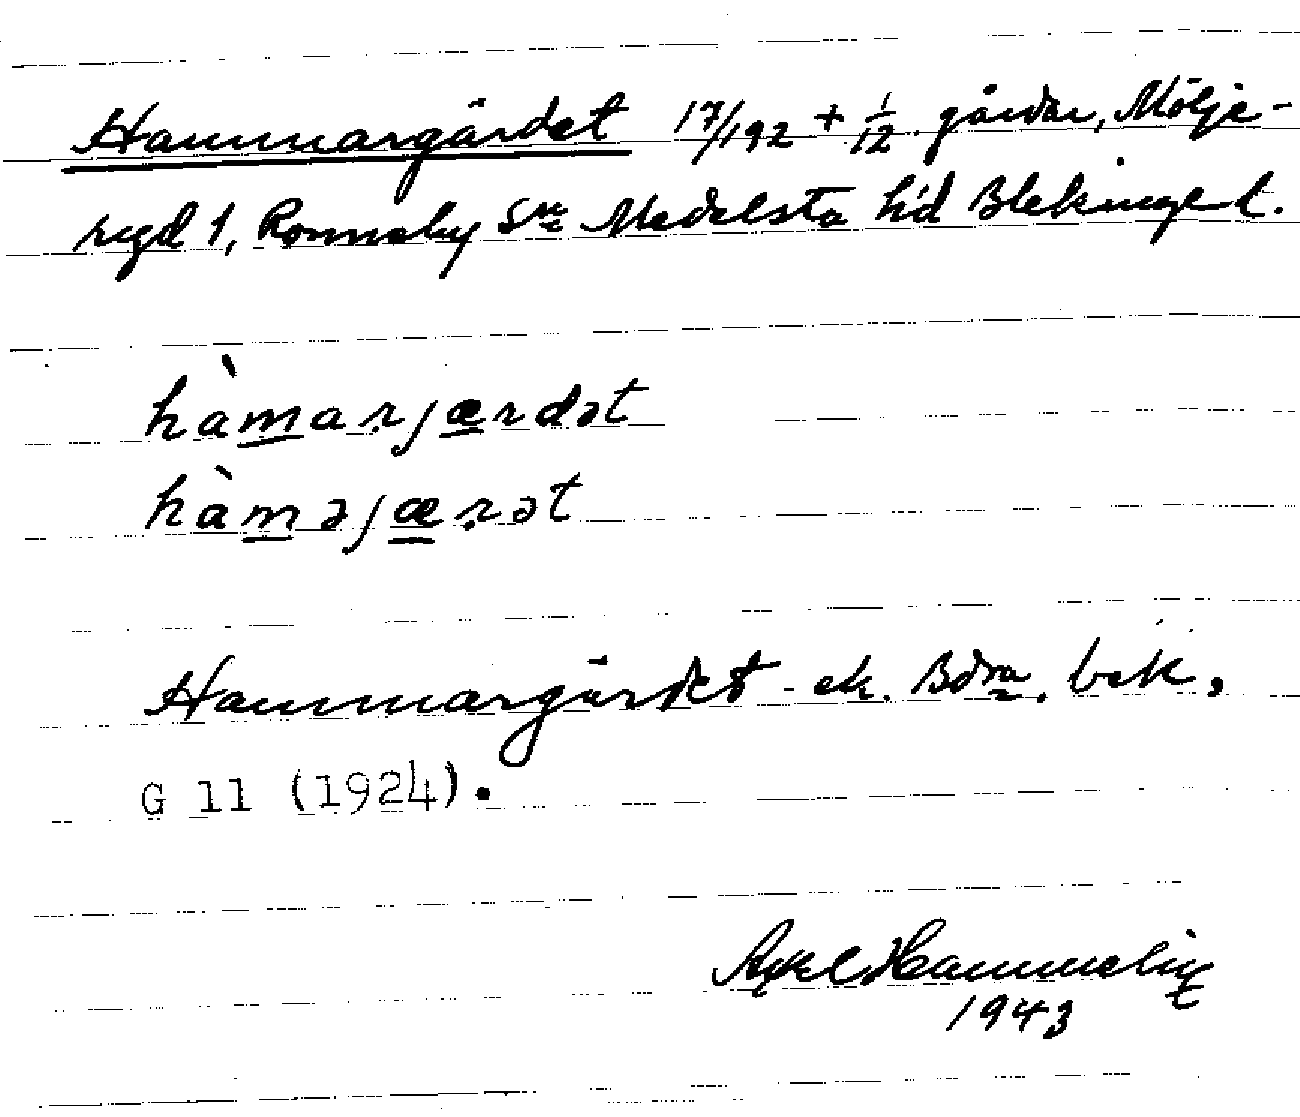 Hammargärdet 17/192 + 1/12 gårdar, Mölje-
ryd 1, Ronneby Sn Medelsta hd Blekinge l.
hàmarjærdət
hàməjærət
Hammargärdet ek. bek.
G 11 (1924).
Axel Hammelin
1943